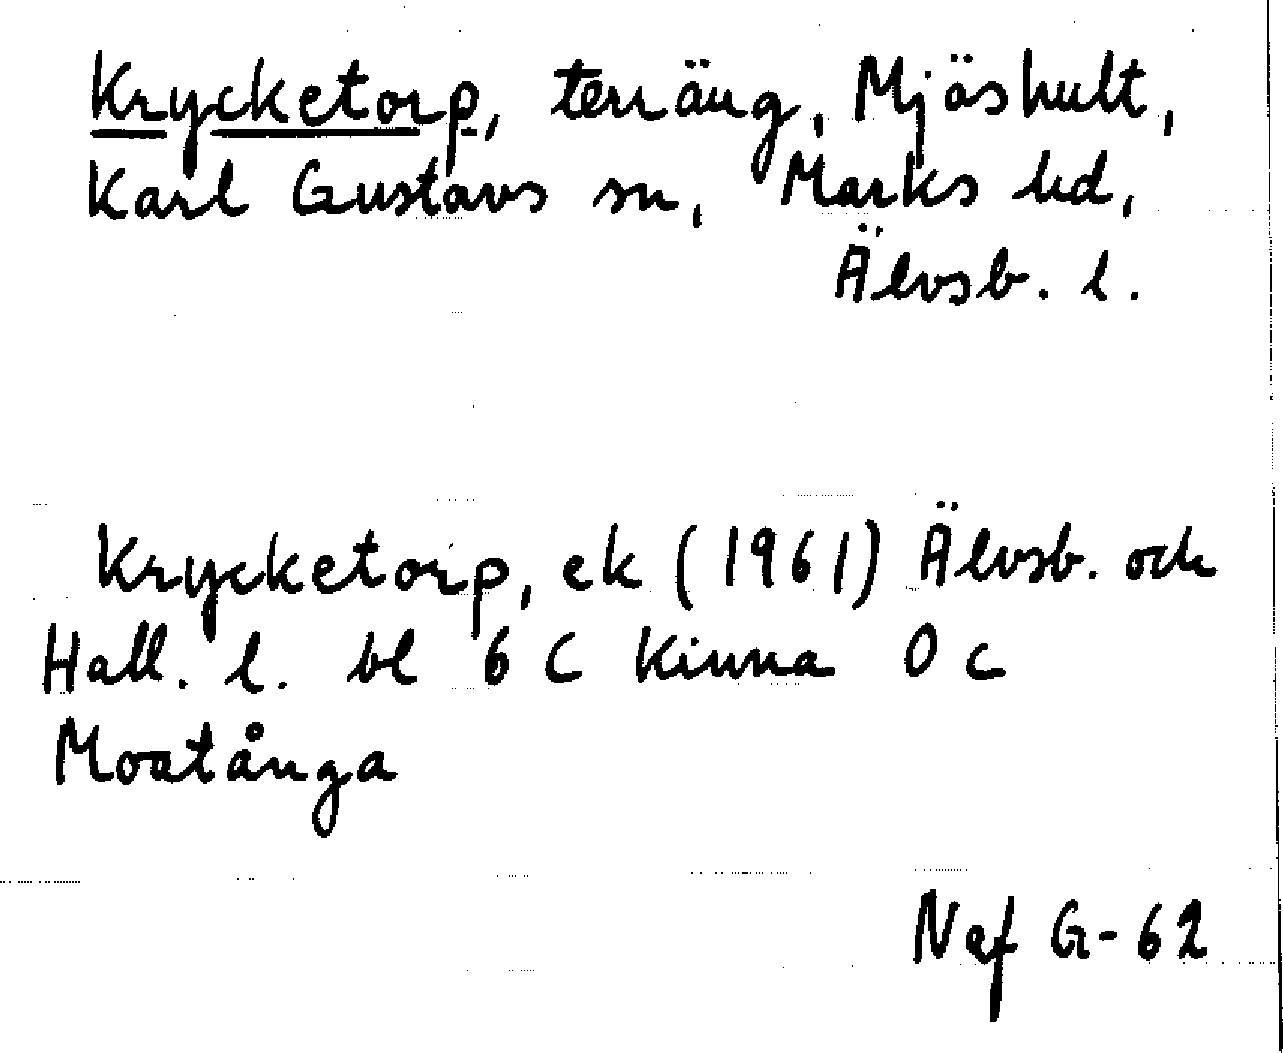 Krycketorp, terräng, Mjöshult,
Karl Gustavs sn, Marks hd,
Älvsb. l.
Krycketorp, ek (1961) Älvsb. och
Hall. l. bl 6 C Kinna 0 c
Moatånga
Naf G-62